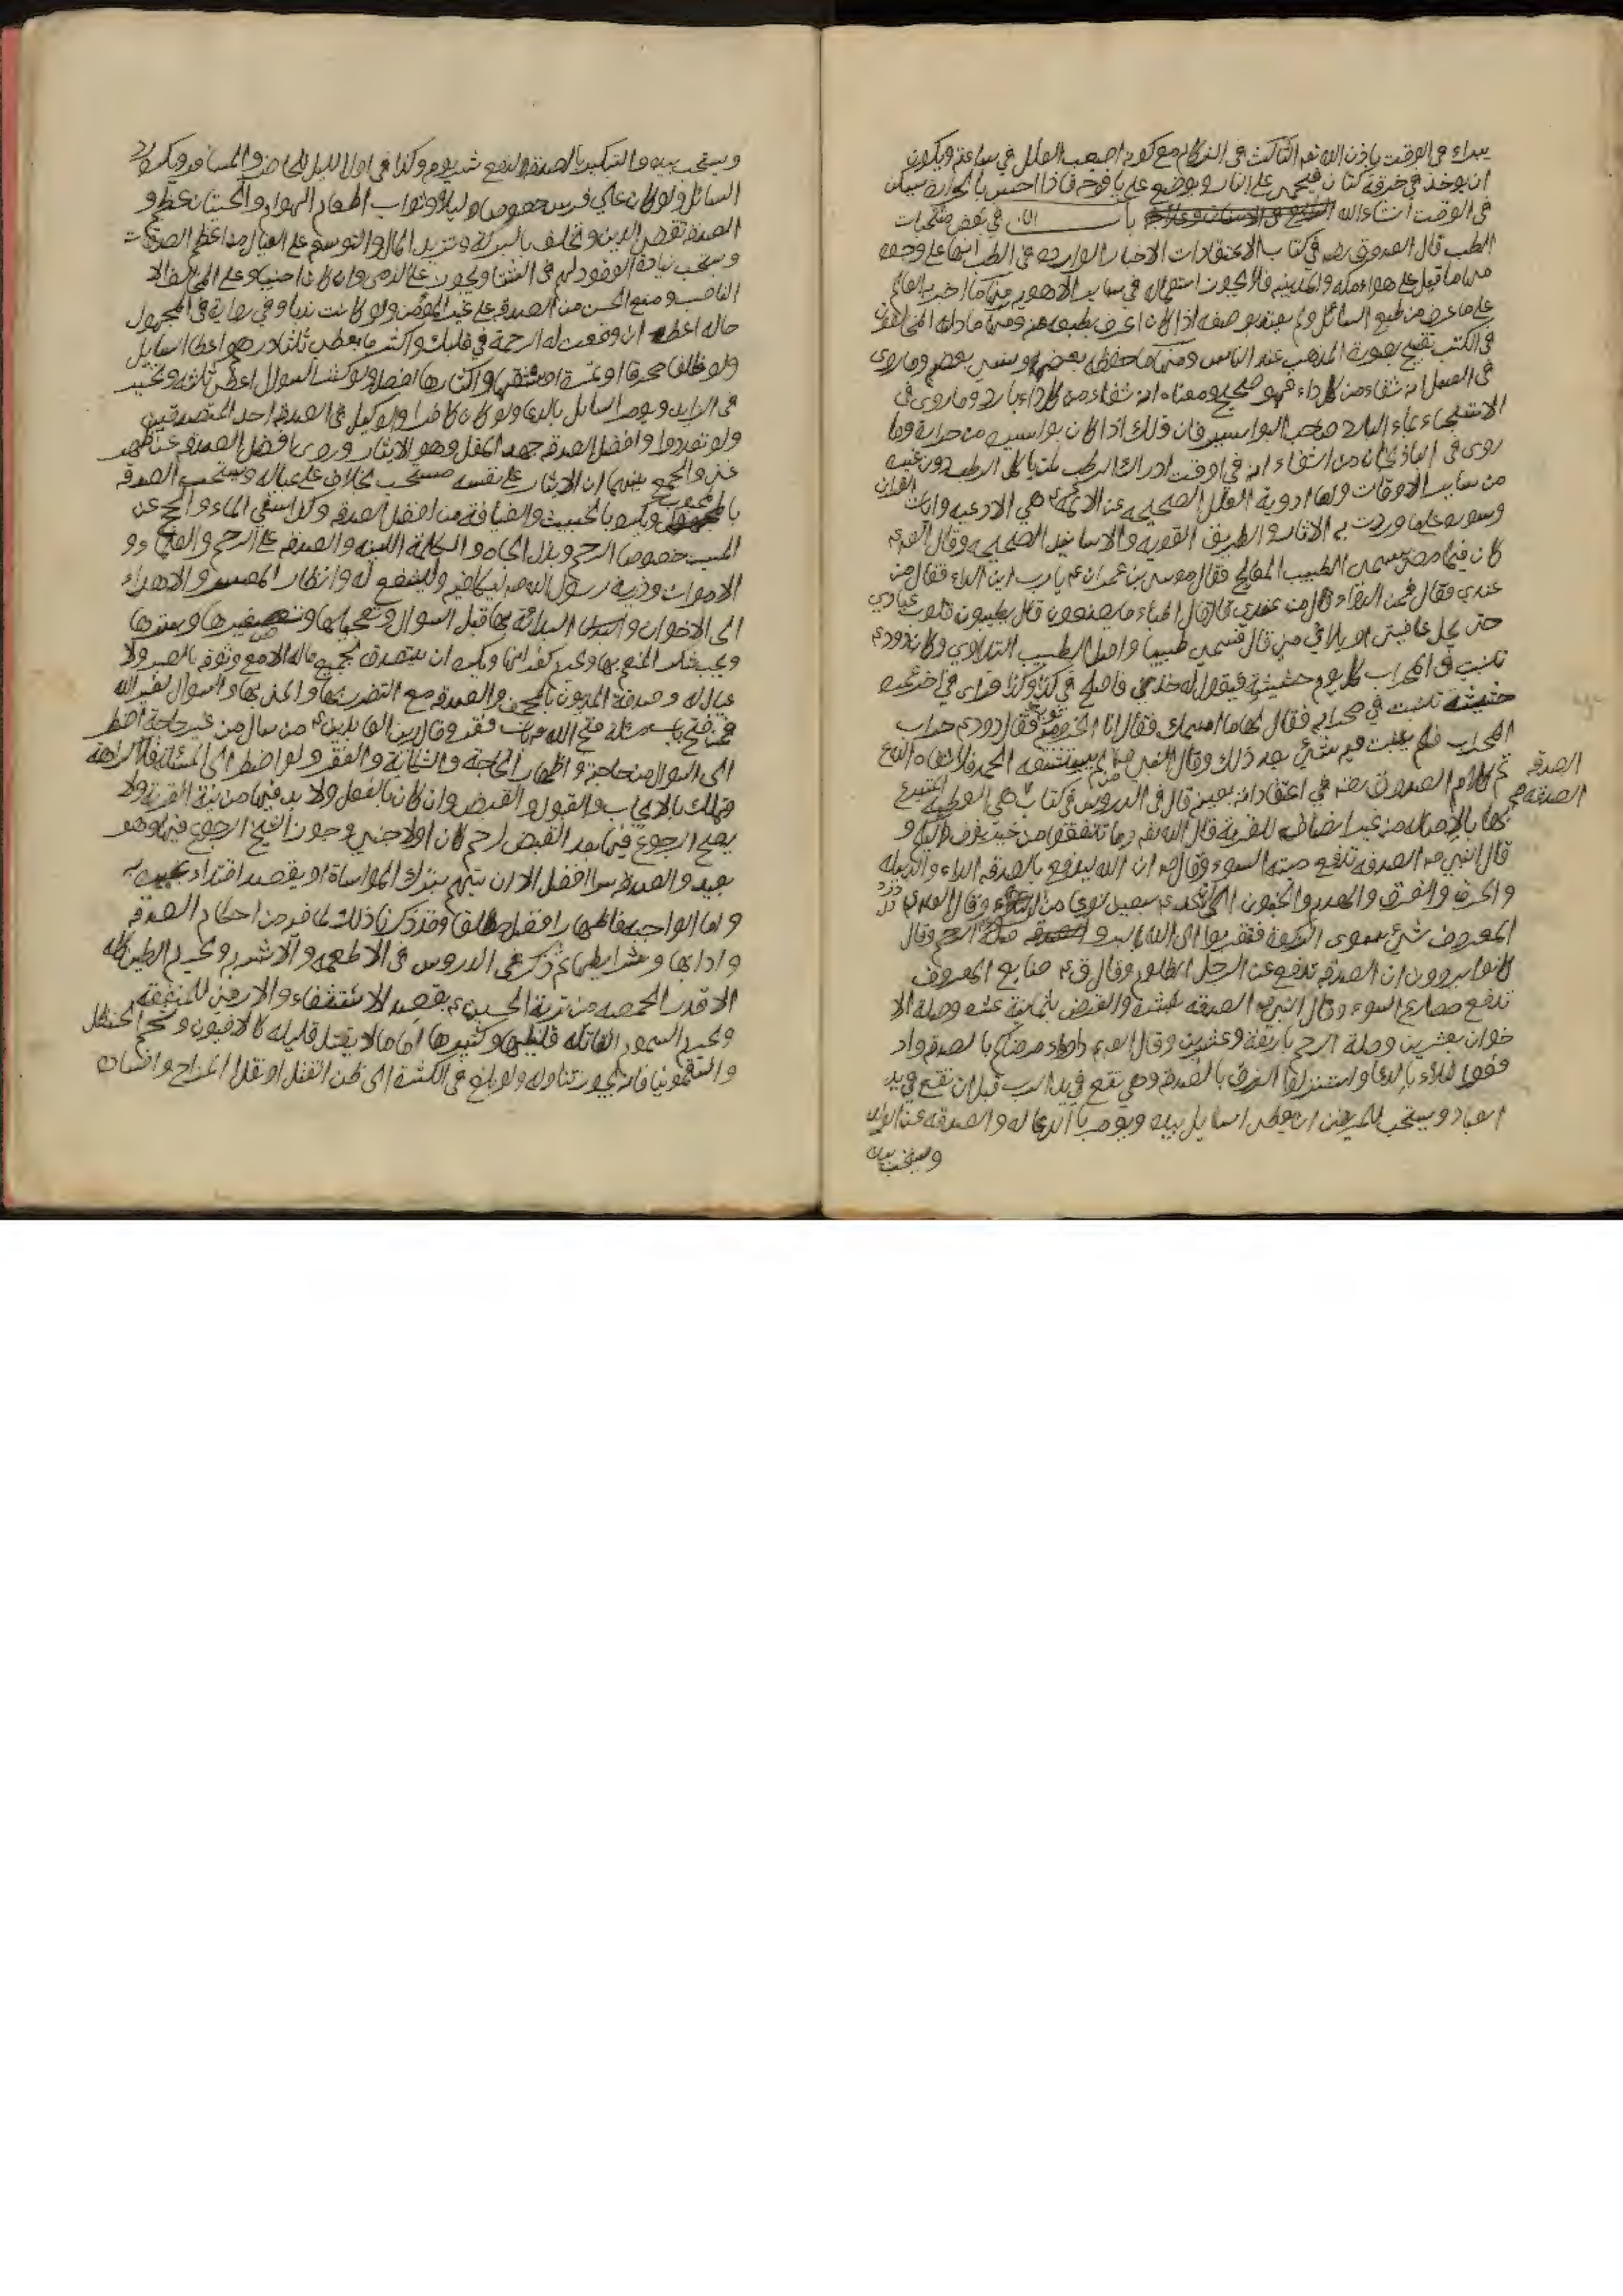 يبراء في الوقت باذن الله تعم الثالث في الزكام مع كونه اصعب العلل في ساعة ويكون
ان يوخذ في خرقة كتان فيحمى على النار ويوضع على يافوخه فاذا احس بالحرارة سكن
في الوقت انشاء الله باب في بعض منتخبات
الطب قال الصدوق رض في كتاب الاعتقادات الاخبار الوارده في الطب انها على وجوه
منها ما قيل على هواء مكه والمدينه فلا يجوز استعماله في ساير الاهويه ومنها ما اخبر به العالم
على ما عرف من طبع السائل ولم يعتد بوصفه اذا كان اعرف بطبعه منه ومنها ما دلسه المخالفون
في الكتب تقبيح بصورة المذهب عند الناس ومنها ما حفظه بعضهم ونسى بعضه وما روى
في العسل انه شفاء من كل داء فهو صحيح ومعناه انه شفاء من كل داء بارد وما روى في
الاستنجاء بماء البارد صاحب البواسير فان ذلك اذا كان بواسيره من حرارة وما
روى في الباذنجان من الشفاء انه في وقت ادراك الرطب لمن ياكل الرطب دون غيره
من ساير الاوقات واما ادوية العلل الصحيحه عن الائمه ع هي الادعيه وايات القران
وسوره على ما وردت به الاثار والطريق القويه والاسانيد الصحيحه وقال الص ع
كان فيما مضى يسمى الطبيب المعالج فقال موسى بن عمران ع يا رب اين الداء فقال من
عندي فقال فمن الدواء قال من عندي قال قال فالاطباء ما يصنعون قال يطيبون قلوب عبادي
حتى يحل عافيتي او بلائي فمن قال فسمى طبيبا واصل الطبيب التداوي وكان داود ع
تنبت في المحراب كل يوم حشيشة فيقول له خذني فاصلح في كذا وكذا فراى في اخر عمره
حشيشة تنبت في محرابه فقال لها ما اسمك فقال انا الخرنوبيه فقال داود ع خراب
المحراب فلم ينبت فيه شئ بعد ذلك وقال النبي ص من لم يستشفه الحمد فلا شفاه الله
تم كلام الصدوق رضه في اعتقاداته بعينه قال في الدروس في كتاب هي العطيه المتبرع
بها بالاصاله من غير نصاب للقربة قال الله تعم وما تنفقوا من خير يوف اليكم و
قال النبي ص الصدقه تدفع ميتة السوء وقال ص ان الله ليدفع بالصدقه الداء والدبيله
والحرق والغرق والهدم والجنون الى ان عد ع سبعين نوعا من السوء وقال الص ع
المعروف شئ سوى الزكوة فتقربوا الى الله بالبر و صلة الرحم وقال
كانوا يروون ان الصدقه تدفع عن الرجل الظلوم وقال ق ع صنايع المعروف
تدفع مصارع السوء وقال النبي ص الصدقه بعشرة والقرض بثمانية عشر وصلة الا
خوان بعشرين وصلة الرحم باربعة وعشرين وقال الص ع داووا مرضاكم بالصدقه واد
فعوا البلاء بالدعا واستنزلوا الرزق بالصدقه وهي تقع في يد الرب قبل ان تقع في يد
العباد ويستحب للمريض ان يعطى السايل بيده ويومر بالدعا له والصدقه عن الولد
ويستحب بيده
الصدقه
الصدقه هي
ويستحب بيده والتبكير بالصدقه لدفع شر يومه وكذا في اول الليل للحاضر والمسافر ويكره رد
السائل ولو كان على فرس خصوصا ليلا وثواب اطعام الهوام والحيتان عظيم و
الصدقه تقضى الدين وتخلف بالبركة وتزيد المال والتوسعه على العيال من اعظم الصدقات
ويستحب زيادة الوقود لهم في الشتا ويجوز على الذمى وان كان اجنبيا وعلى المخالف الا
الناصب ومنع الحسن من الصدقه على غير المؤمن ولو كانت ندبا وفي رواية في المجهول
حاله اعطه ان وقعت له الرحمة في قلبك واكثر ما يعطى ثلثا درهم اعطا السايل
ولو ظلفا محرقا او تمرة او شقها واكثارها افضل ولو كثر السوال اعطى ثلثه وتخير
في الزايد ويومر السايل بالدعا ولو كان كافرا والوكيل في الصدقه احد المتصدقين
ولو تعددوا وافضل الصدقه جهد المقل وهو الايثار وروى افضل الصدقه عن ظهر
غنى والجمع بينهما ان الايثار على نفسه مستحب بخلاف على عياله ويستحب الصدقه
بالمحبوب ويكره بالخبيث والضيافة من افضل الصدقه وكذا سقى الماء والحج عن
الميت خصوصا الرحم وبذل الجاه والكلمة اللينه والصدقه على الرحم والعلماء و
الاموات وذرية رسول الله ص ليكافيه وليشفع له وانظار المعسر والاهداء
الى الاخوان والبدائه بها قبل السوال وتعجيلها وتصغيرها وسترها
ويجب شكر المنعم بها ويحرم كفرانها ويكره ان يتصدق بجميع ماله الا مع وثوقه بالصبر ولا
عيال له وصدقة المديون بالمجحف والصدقه مع التضرر بها والمن بها والسوال لغير الله
فمن فتح باب مسئلة فتح الله باب فقر وقال زين العابدين ع من سال من غير حاجة اضطر
الى السوال من حاجة واظهار الحاجة والشكاية والفقر ولو اضطر الى المسئله فلا كراهة
وتملك بالايجاب والقبول والقبض وان كان بالفعل ولا بد فيها من نية القربة ولا
يصح الرجوع فيها بعد القبض لرحم كان او لاجنبى وجوز الشيخ الرجوع فيها وهو
بعيد والصدقة سرا افضل الا ان يتهم بترك المواساة او يقصد اقتداء غيره به
واما الواجبه فاظهارها افضل مطلقا وقد ذكرنا ذلك لما فيه من احكام الصدقه
وادابها وشرايطها ثم ذكر في الدروس في الاطعمه والاشربه ويحرم الطين كله
الا قدر الحمصه من تربة الحسين ع بقصد الاستشفاء والارمنى للمنفعه
ويحرم السموم القاتله قليلها وكثيرها اما ما لا يقتل قليله كالافيون وشحم الحنظل
والسقمونيا فانه يجوز تناوله ولو بلغ في الكثرة الى ظن القتل او ثقل المزاج وافساده